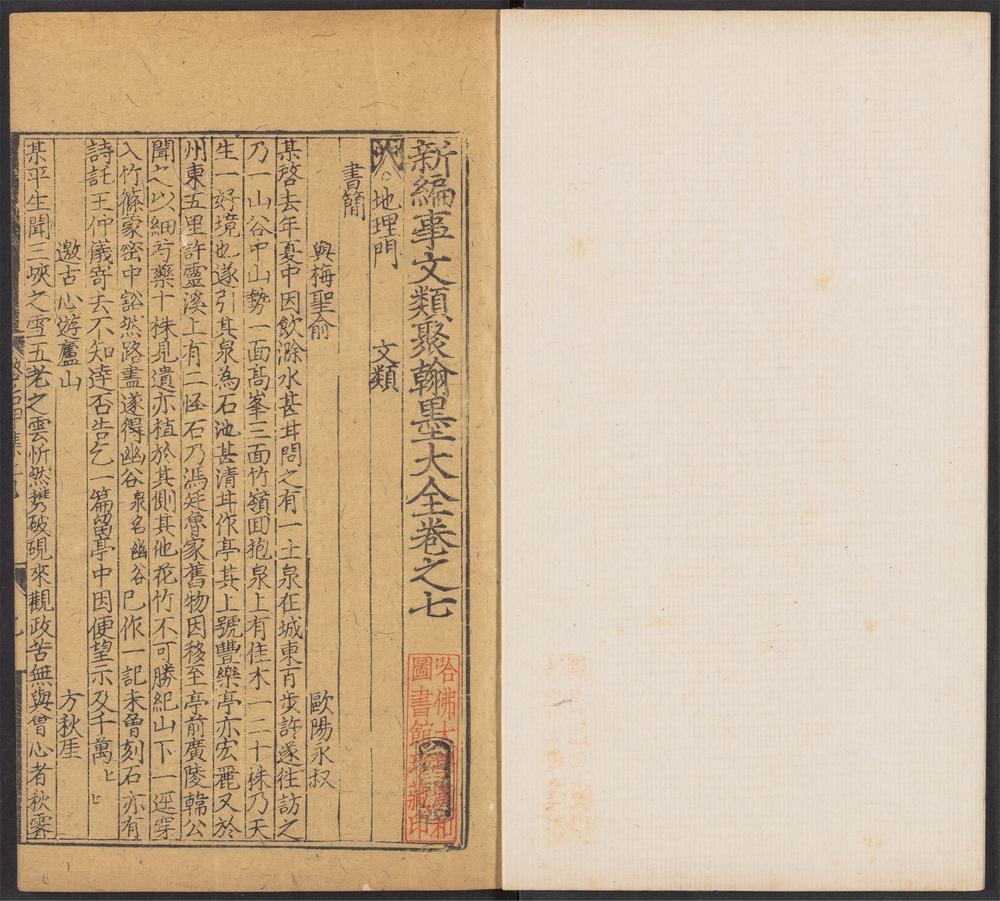 新編事文類聚翰墨大全卷之七
地理門　文類
書簡
與梅聖俞　歐陽永叔
某啓去年夏中因飲滁水甚甘問之有一土泉在城東百步許遂往訪之
乃一山谷中山勢一面高峯三面竹嶺回抱泉上有佳木一二十株乃天
生一好境也遂引其泉為石池甚清甘作亭其上號豐樂亭亦宏麗又於
州東五里許靈溪上有二怪石乃馮延魯家舊物因移至亭前廣陵韓公
聞之以細芍藥十株見遺亦植於其側其他花竹不可勝紀山下一逕穿
入竹篠蒙密中豁然路盡遂得幽谷泉名幽谷已作一記未曾刻石亦有
詩託王仲儀寄去不知達否告乞一篇留亭中因便望示及千萬〻〻
邀古心遊廬山　方秋厓
某平生聞三峽之雪五老之雲忻然携破硯來觀政苦無與會心者秋霽
哈佛大學
和
圖書館珍藏印